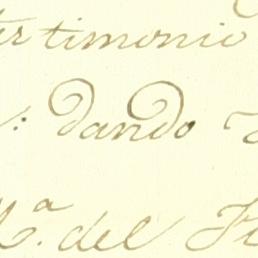 testimonio
: dando
M.ª del